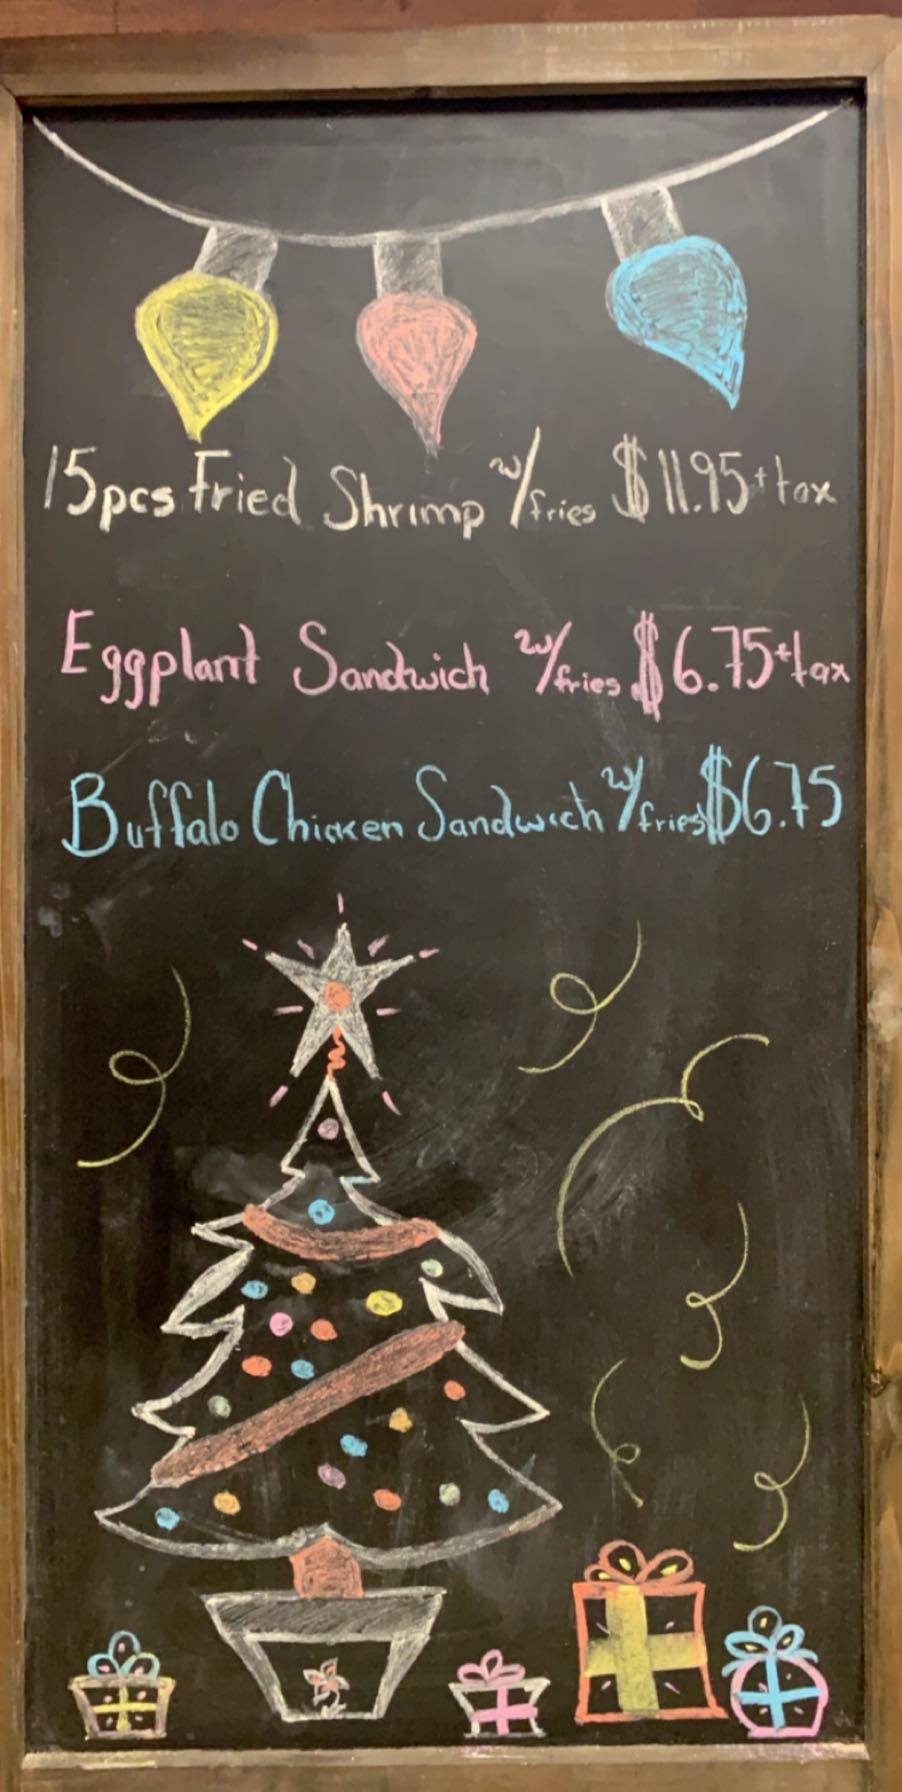 15pcs Fried Shrimp w/fries $11.95+tax
Eggplant Sandwich w/fries $6.75+tax
Buffalo Chicken Sandwich w/fries $6.75